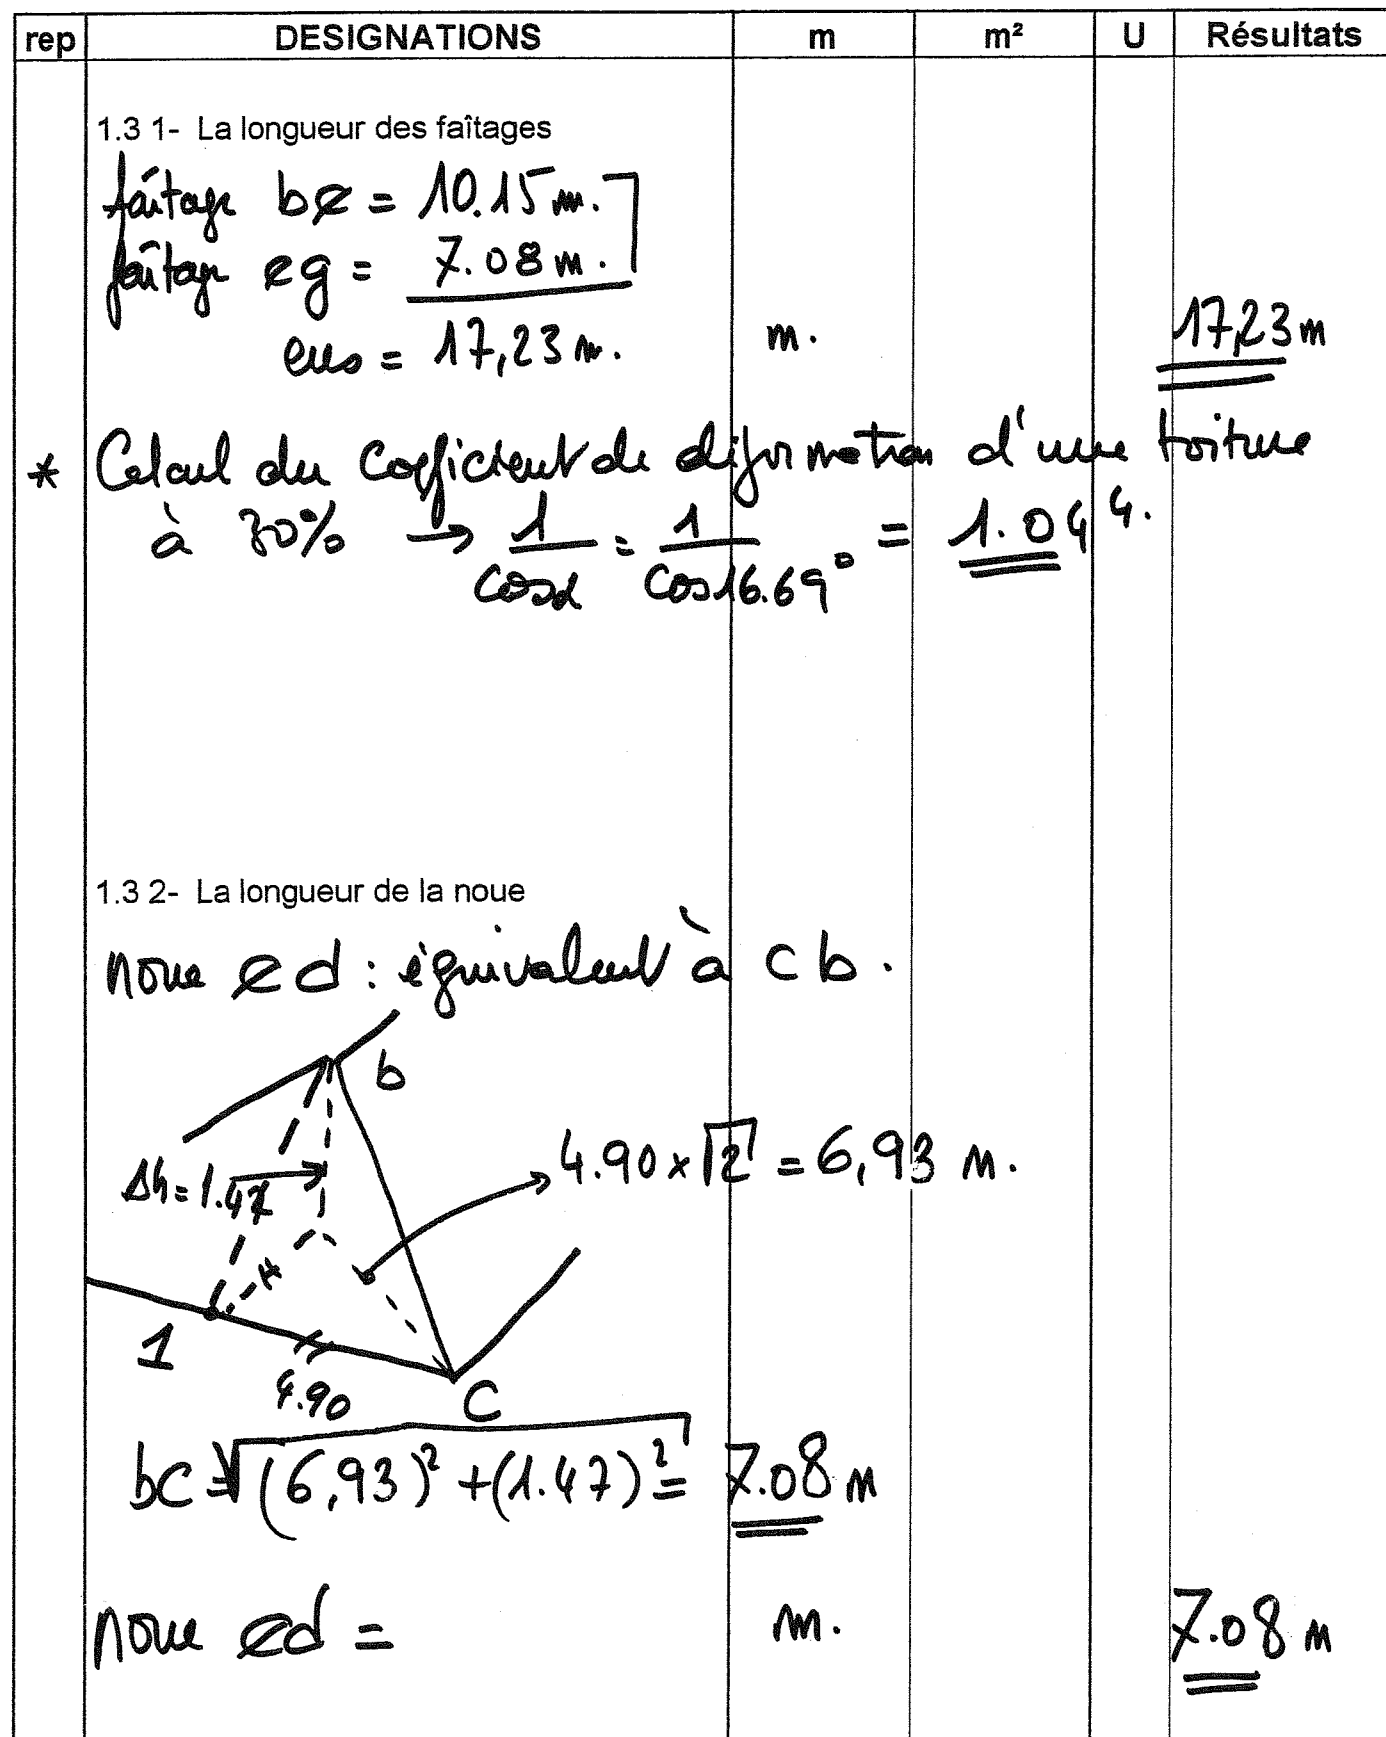 rep DESIGNATIONS m m² U Résultats
1.3 1- La longueur des faîtages
faîtage be = 10.15 m.
faîtage eg = 7.08 m.
ens = 17,23 m. m. 17,23 m
* Calcul du coefficient de déformation d'une toiture
à 30% → 1/cosα = 1/cos16.69° = 1.044.
1.3 2- La longueur de la noue
noue ed : équivalent à cb.
b
Δh = 1.47
4.90 × √2 = 6,93 m.
1
4.90
C
bc = √(6,93)² + (1.47)² = 7.08 m
noue ed = m. 7.08 m